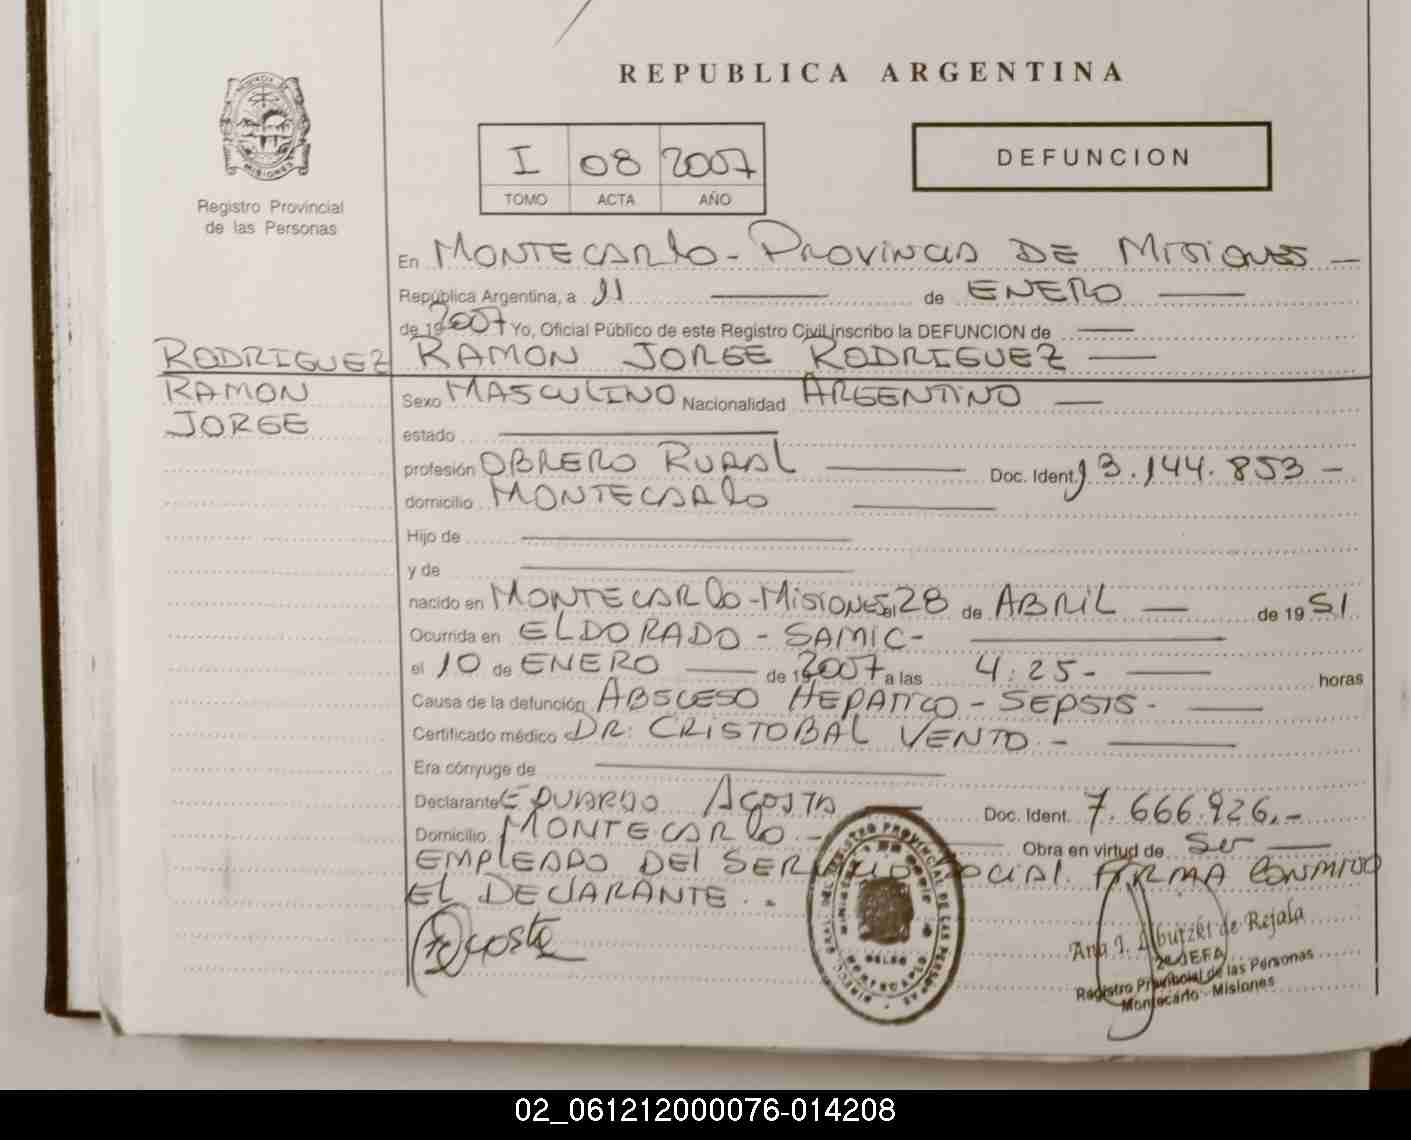 REPUBLICA ARGENTINA
MISIONES
Registro Provincial
de las Personas
I 08 2007
TOMO ACTA AÑO
DEFUNCION
En MONTECARLO - PROVINCIA DE MISIONES —
República Argentina, a 11 — de ENERO —
de 192007 Yo, Oficial Público de este Registro Civil inscribo la DEFUNCION de —
RODRIGUEZ RAMON JORGE RODRIGUEZ —
RAMON
JORGE
Sexo MASCULINO Nacionalidad ARGENTINO —
estado —
profesión OBRERO RURAL — Doc. Ident. 13.144.853 -
domicilio MONTECARLO —
Hijo de —
y de —
nacido en MONTECARLO - MISIONES el 28 de ABRIL — de 19 51
Ocurrida en ELDORADO - SAMIC - —
el 10 de ENERO — de 192007 a las 4:25 - — horas
Causa de la defunción ABSCESO HEPATICO - SEPSIS - —
Certificado médico DR: CRISTOBAL VENTO. - —
Era cónyuge de —
Declarante EDUARDO AGOSTA — Doc. Ident. 7.666.926.-
Domicilio MONTECARLO - — Obra en virtud de Ser —
EMPLEADO DEL SERVICIO SOCIAL. FIRMA CONMIGO
EL DECLARANTE..
Agosta
Ana I. Alburzki de Rejala
2da JEFA
Registro Provincial de las Personas
Montecarlo - Misiones
02_061212000076-014208